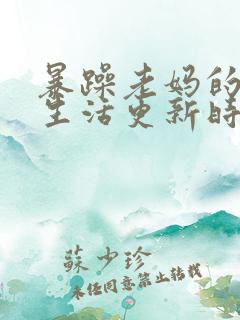 暴躁老妈的
生活更新时
蘇少珍
未经同意禁止转载